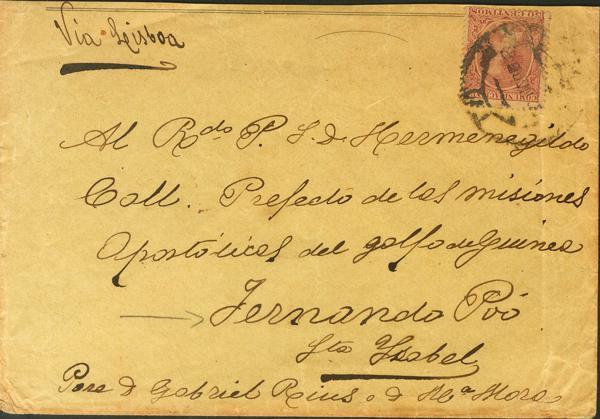 Via Lisboa
Al Rdo P. S. D. Hermenegildo
Coll. Prefecto de las misiones
Apostólicas del golfo de Guinea
Fernando Póo
Sta Ysabel
Para D Gabriel Rius o d Mª Mora